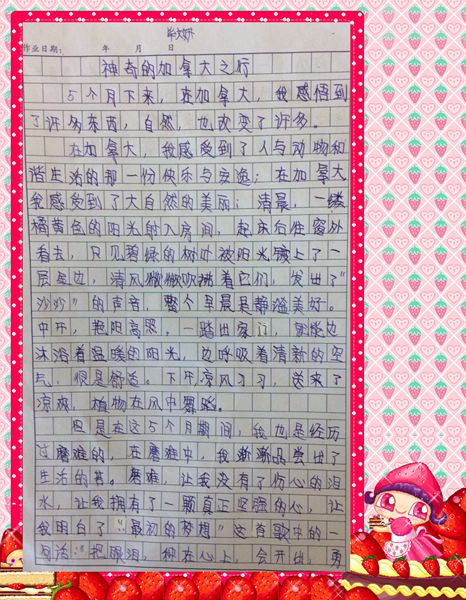 作业日期: 年 月 日
神奇的加拿大之行
5个月下来，在加拿大，我感悟到
了许多东西，自然，也改变了许多。
在加拿大，我感受到了人与动物和
谐生活的那一份快乐与安逸；在加拿大
我感受到了大自然的美丽：清晨，一缕
橘黄色的阳光射入房间，起床后往窗外
看去，只见碧绿的树叶被阳光镀上了一
层金边，清风微微吹拂着它们，发出了"
沙沙"的声音，整个早晨是静谧美好。
中午，艳阳高照，一踏出家门，边
沐浴着温暖的阳光，边呼吸着清新的空
气，很是舒适。下午，凉风习习，送来了
凉爽，植物在风中舞蹈。
但是在这5个月期间，我也是经历
过磨难的，在磨难中，我渐渐品尝出了
生活的苦。磨难，让我没有了伤心的泪
水，让我拥有了一颗真正坚强的心，让
我明白了"最初的梦想"这首歌中的一
句话："把眼泪，种在心上，会开出，勇